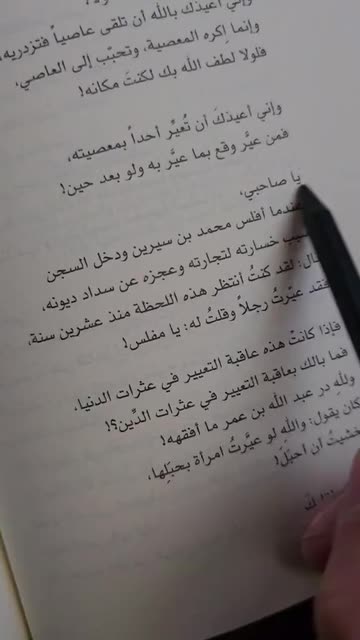 وإني أعيذك بالله أن تلقى عاصياً فتزدريه،
وإنما اِكره المعصية، وتحبّب إلى العاصي،
فلولا لطف الله بك لكنتَ مكانه!
وإني أعيذكَ أن تُعيِّر أحداً بمعصيته،
فمن عيَّر وقع بما عيَّر به ولو بعد حين!
يا صاحبي،
عندما أفلس محمد بن سيرين ودخل السجن
بسبب خسارته لتجارته وعجزه عن سداد ديونه،
قال: لقد كنتُ أنتظر هذه اللحظة منذ عشرين سنة،
فقد عيّرتُ رجلاً وقلتُ له: يا مفلس!
فإذا كانتْ هذه عاقبة التعيير في عثرات الدنيا،
فما بالك بعاقبة التعيير في عثرات الدِّين؟!
وللهِ در عبد الله بن عمر ما أفقهه!
كان يقول: واللهِ لو عيَّرتُ امرأة بحبَلِها،
خشيتُ أن أحبَلَ!